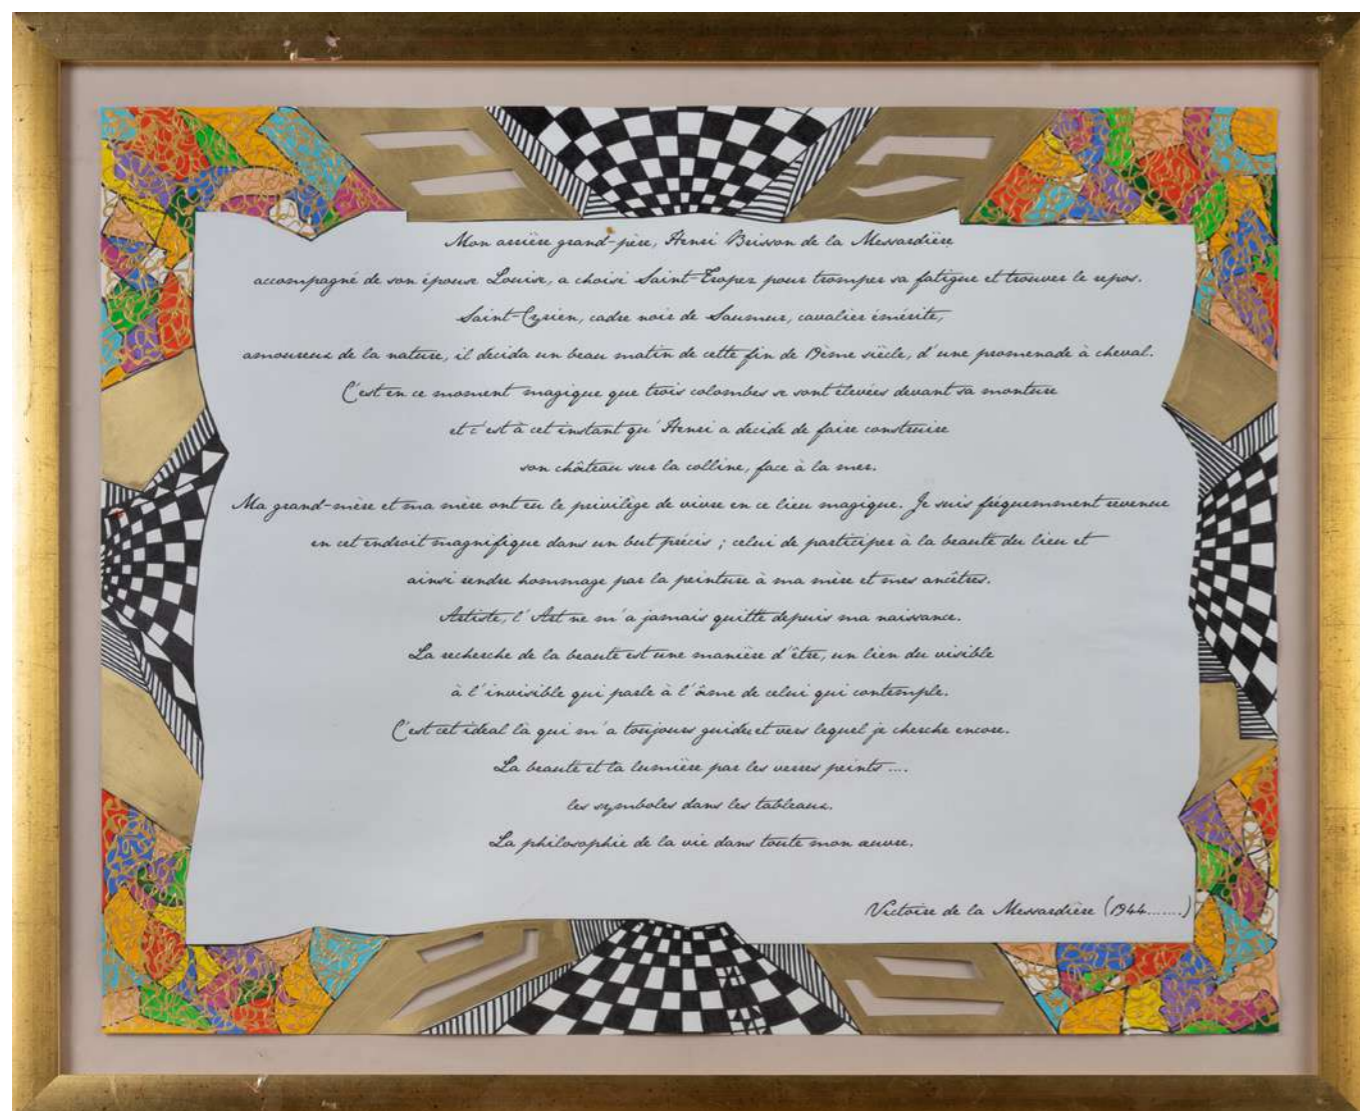 Mon arrière grand-père, Henri Brisson de la Messardière
accompagné de son épouse Louise, a choisi Saint-Tropez pour tromper sa fatigue et trouver le repos.
Saint-Cyrien, cadre noir de Saumur, cavalier émérite,
amoureux de la nature, il décida un beau matin de cette fin de 19ème siècle, d'une promenade à cheval.
C'est en ce moment magique que trois colombes se sont élevées devant sa monture
et c'est à cet instant qu'Henri a décidé de faire construire
son château sur la colline, face à la mer.
Ma grand-mère et ma mère ont eu le privilège de vivre en ce lieu magique. Je suis fréquemment revenue
en cet endroit magnifique dans un but précis ; celui de participer à la beauté du lieu et
ainsi rendre hommage par la peinture à ma mère et mes ancêtres.
Artiste, l'Art ne m'a jamais quitté depuis ma naissance.
La recherche de la beauté est une manière d'être, un lien du visible
à l'invisible qui parle à l'âme de celui qui contemple.
C'est cet idéal là qui m'a toujours guidé et vers lequel je cherche encore.
La beauté et la lumière par les verres peints ....
les symboles dans les tableaux.
La philosophie de la vie dans toute mon œuvre.
Victoire de la Messardière (1944.......)